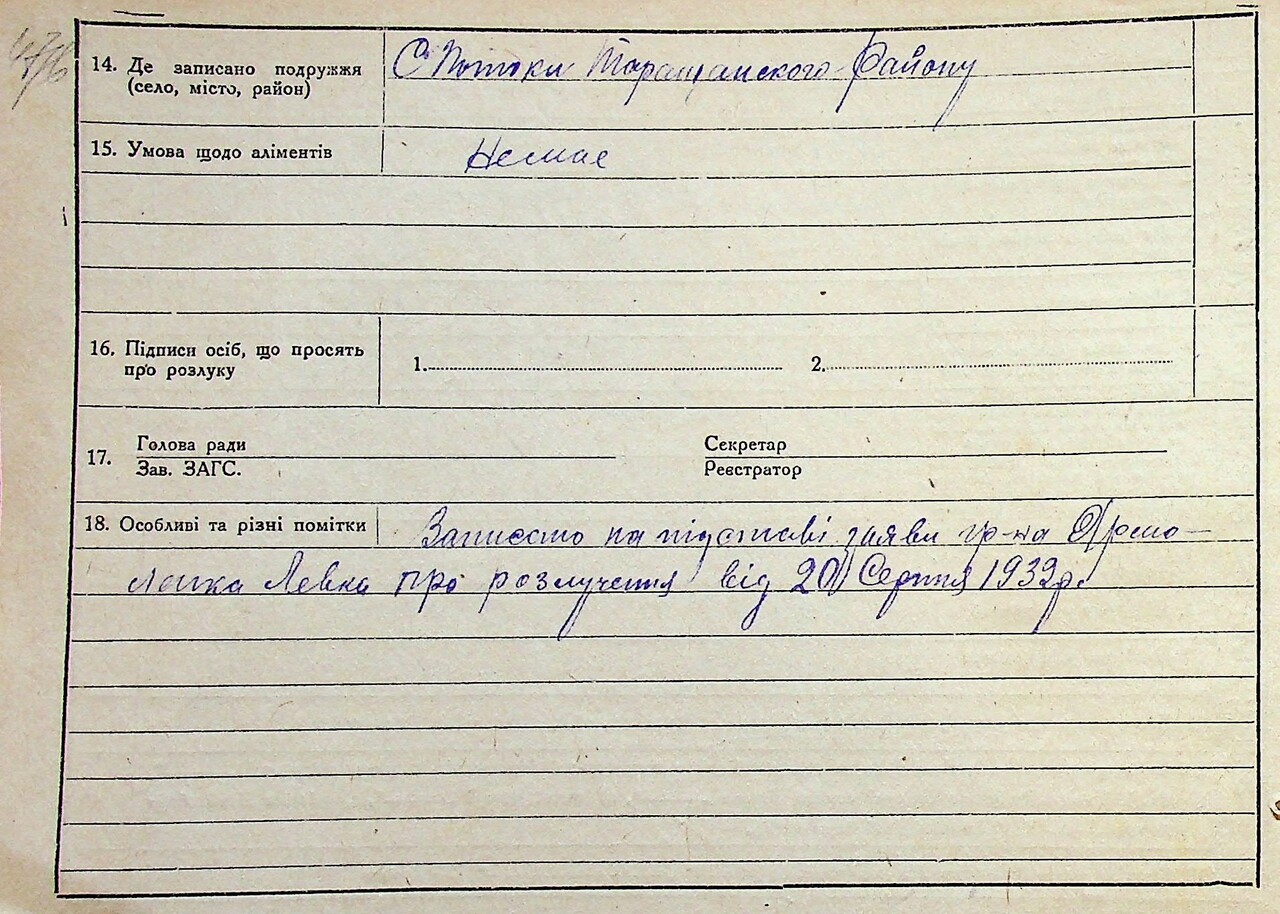 14. Де записано подружжя
(село, місто, район)
С Потоки Таращанского Району
15. Умова щодо аліментів
Немає
16. Підписи осіб, що просять
про розлуку
1. 2.
17. Голова ради
Зав. ЗАГС.
Секретар
Реєстратор
18. Особливі та різні помітки
Записано на підставі заяви гр-на
Левка про розлучення від 20 Серпня 1932р.